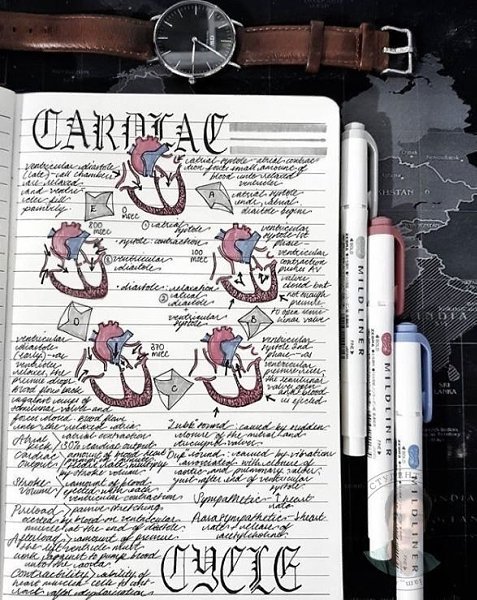 CARDIAC
ventricular diastole
(late)-all chambers
are relaxed
and ventri-
cles fill
passively
atrial systole-atrial contrac-
tion forces small amount of
blood into relaxed
ventricles
atrial systole
ends, atrial
diastole begins
E
A
0
msec
① atrial
systole
systole-contraction
800
msec
100
msec
② ventricular
diastole
diastole-relaxation
② atrial
diastole
ventricular
systole
ventricular
systole 1st
phase-
ventricular
contraction
pushes AV
valves
closed but
not enough
pressure
to open semi-
lunar valve
D
B
370
msec
C
ventricular
diastole
(early)-as
ventricles
relaxes, the
pressure drops,
blood flows back
against cusps of
semilunar valves and
forces closed. Blood flows
into the relaxed atria
ventricular
systole 2nd
phase-as
ventricular
pressure rises,
the semilunar
valves open
and blood
is ejected
Atrial kick) atrial contraction
30% cardiac output
Cardiac output) amount of blood heart
(heart rate multiply
by stroke volume)
Stroke volume) amount of blood
ejected with each
ventricular contraction
Preload) passive stretching
exerted by blood on ventricular
muscle at the end of diastole
Afterload) amount of pressure
the left ventricle must
work against to pump blood
into the aorta
Contractility) ability of
heart muscle cells to cont-
ract after depolarization
"Lubb" sound: caused by sudden
closure of the mitral and
tricuspid valves
Dup sound: caused by vibration
associated with closure of
aortic and pulmonary valves,
just after end of ventricular
systole
Sympathetic-↑heart
rate
Parasympathetic-↓heart
rate & release of
acetylcholine
CYCLE
MILDLINER
MILDLINER
MILDLINER
MILDLINER
INDIA
SRI
LANKA